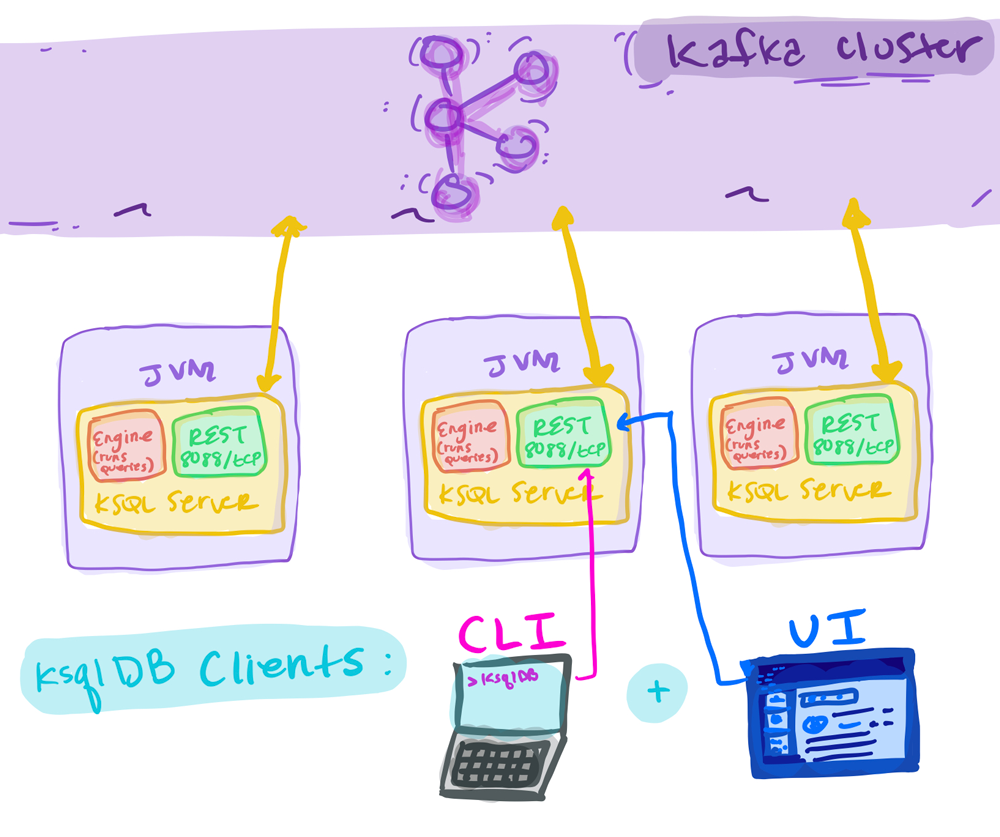 Kafka Cluster
JVM
Engine
(runs
queries)
REST
8088/tcp
KSQL Server
JVM
Engine
(runs
queries)
REST
8088/tcp
KSQL Server
JVM
Engine
(runs
queries)
REST
8088/tcp
KSQL Server
ksqlDB Clients:
CLI
> ksqlDB
+
UI